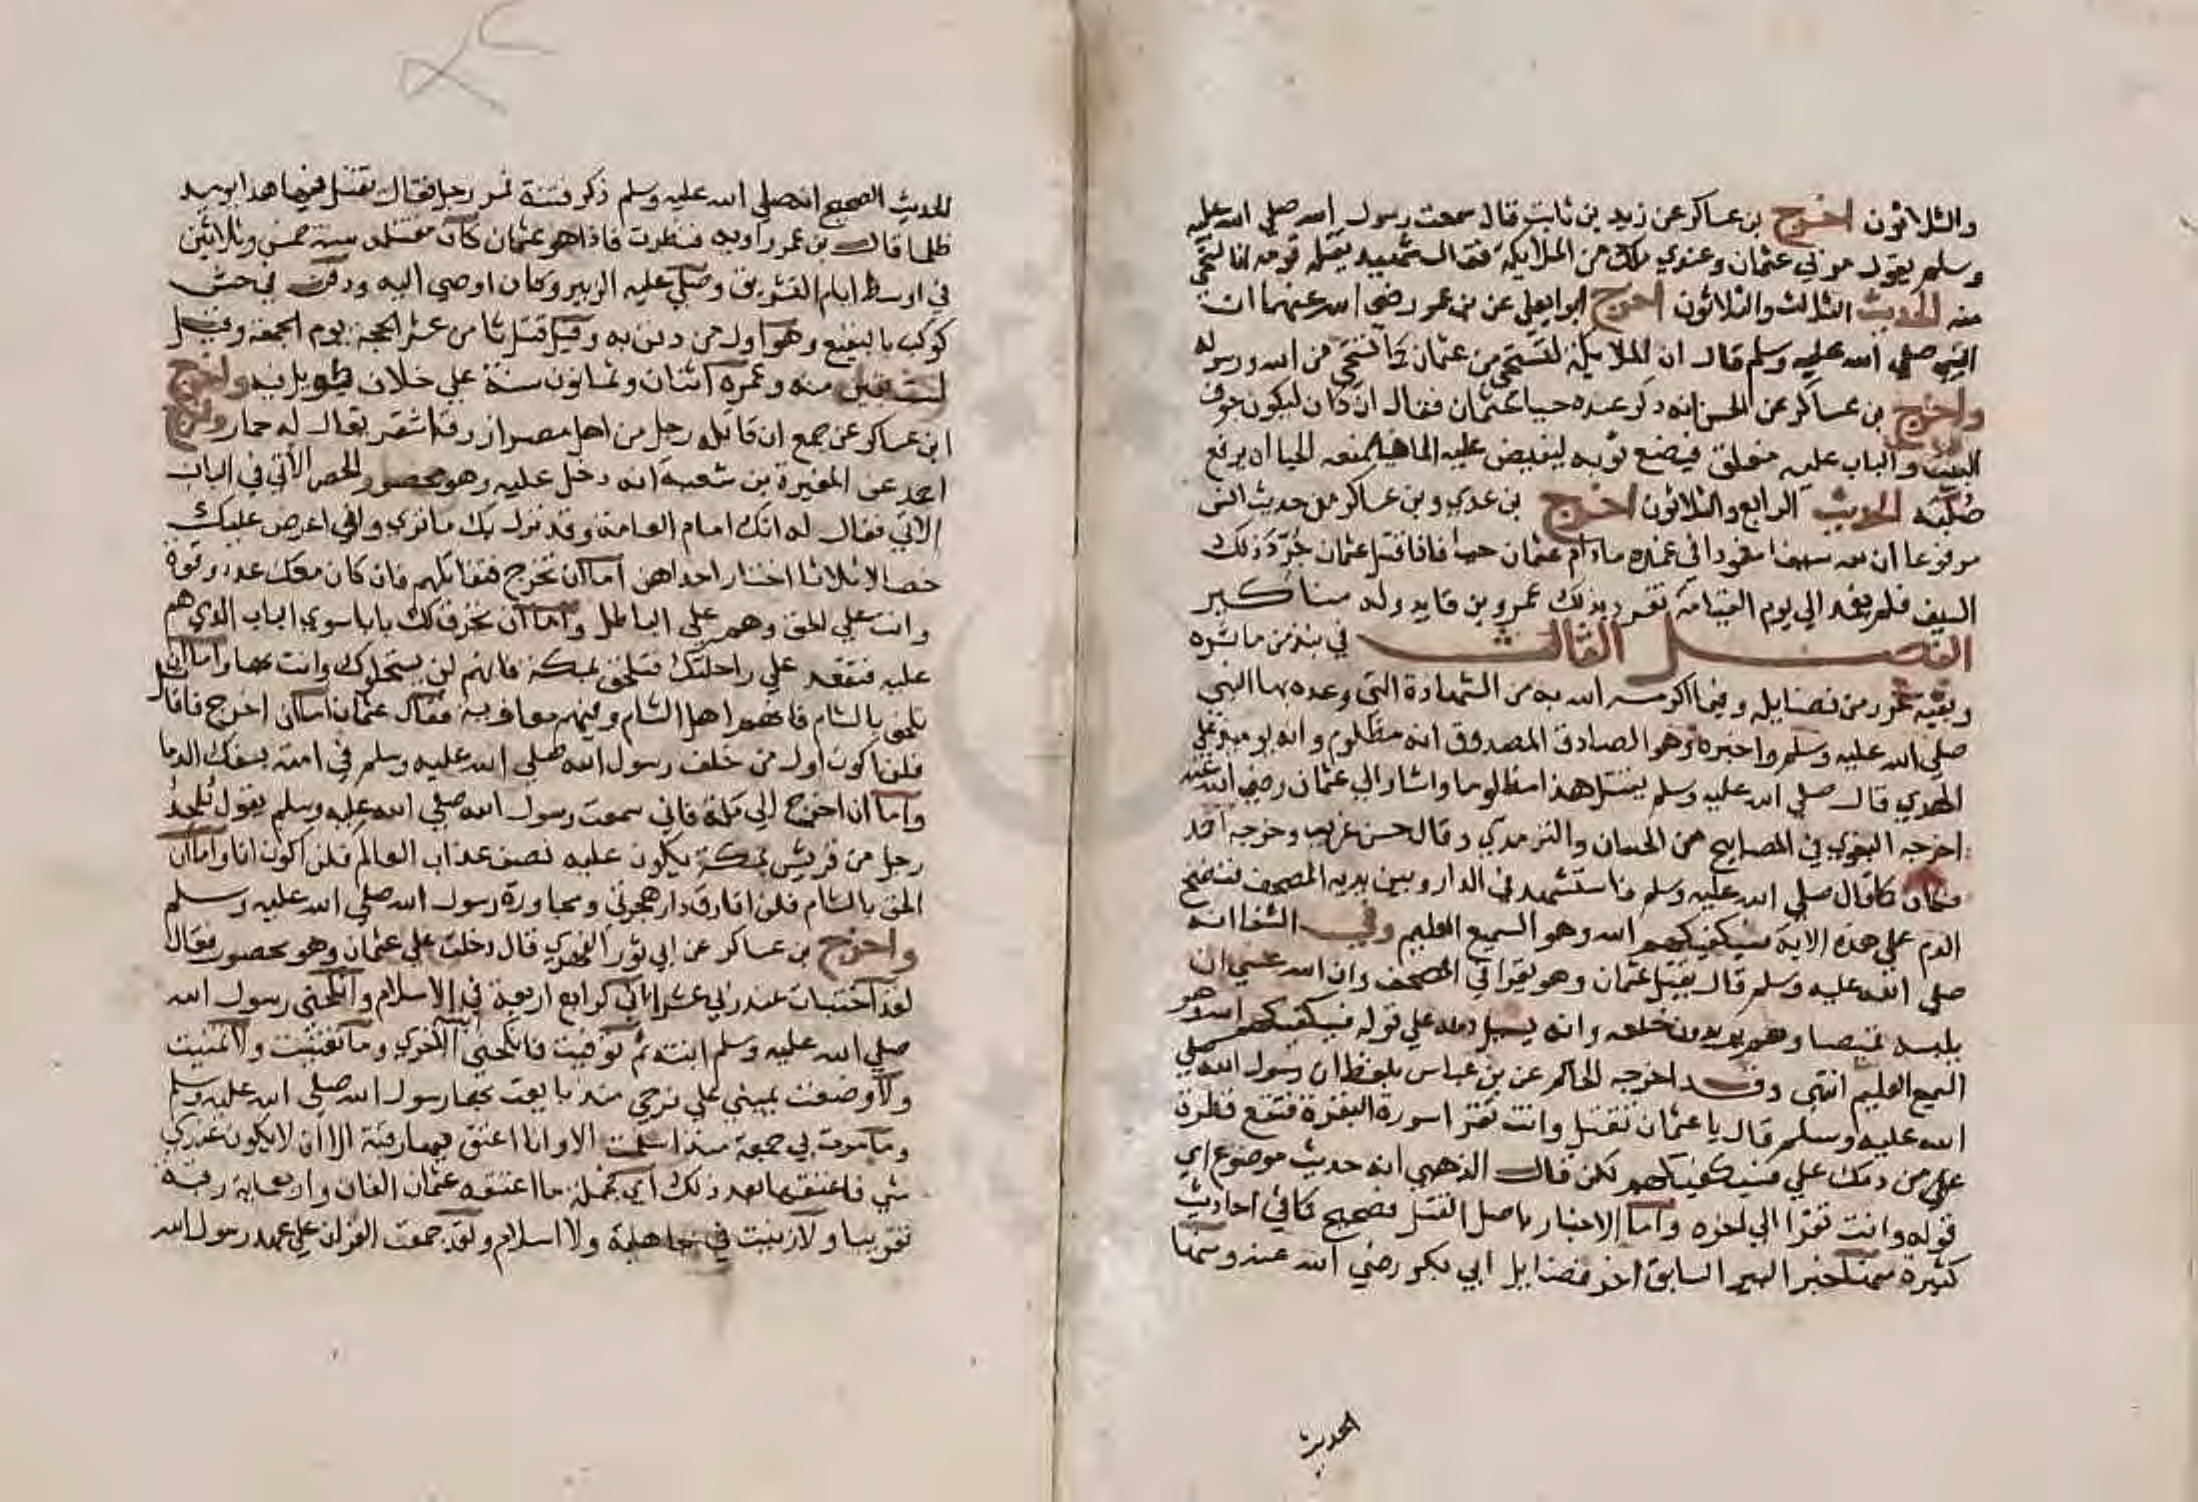 والثلاثون اخرج بن عساكر عن زيد بن ثابت قال سمعت رسول الله صلي الله عليه
وسلم يقول مر بي عثمان وعندي ملك من الملايكة فقال شهيد يقتله قومه انا لنستحي
منه الحديث الثالث والثلاثون اخرج ابو ايعلي عن بن عمر رضي الله عنهما ان
النبي صلي الله عليه وسلم قال ان الملايكة لتستحي من عثمان كما تستحي من الله ورسوله
واخرج بن عساكر عن الحسن انه ذكر عنده حيا عثمان فقال ان كان ليكون جوف
البيت والباب عليه مغلق فيضع ثوبه ليفيض عليه الما فيمنعه الحيا ان يرفع
صلبه الحديث الرابع والثلاثون اخرج بن عدي وبن عساكر من حديث انس
مرفوعا ان لله سيفا مغمودا في غمده مادام عثمان حيا فاذا قتل عثمان جرد ذلك
السيف فلم يغمد الي يوم القيامة تفرد بذلك عمرو بن فايد وله مناكير
الفصل الثالث في نبذ من ماثره
وبقية غرر من فضايله وفيما اكرمه الله به من الشهادة التي وعده بها النبي
صلي الله عليه وسلم واخبره وهو الصادق المصدوق انه مظلوم وانه يوميذ علي
الهدي قال صلي الله عليه وسلم يقتل هذا مظلوما واشار الي عثمان رضي الله عنه
اخرجه البغوي في المصابيح من الحسان والترمذي وقال حسن غريب وخرجه احمد
فكان كما قال صلي الله عليه وسلم فاستشهد في الدار وبين يديه المصحف فنضح
الدم علي هذه الاية فسيكفيكهم الله وهو السميع العليم وفي الشفا انه
صلي الله عليه وسلم قال يقتل عثمان وهو يقرا في المصحف وان الله عسي ان
يلبسه قميصا وهم يريدون خلعه وانه يسيل دمه علي قوله فسيكفيكهم الله وهو
السميع العليم انتهي وقد اخرجه الحاكم عن بن عباس بلفظ ان رسول الله صلي
الله عليه وسلم قال يا عثمان تقتل وانت تقرا سورة البقرة فتقع قطرة
من دمك علي فسيكفيكهم لكن قال الذهبي انه حديث موضوع اي
قوله وانت تقرا الي اخره واما الاخبار باصل القتل فصحيح كما في احاديث
كثيرة منها خبر البير السابق اخر فضايل ابي بكر رضي الله عنه ومنها
الحديث
الحديث الصحيح انه صلي الله عليه وسلم ذكر فتنة فمر رجل فقال يقتل فيها هذا يوميذ
ظلما قال بن عمر راويه فنظرت فاذا هو عثمان كان مقتله سنة خمس وثلاثين
في اوسط ايام التشريق وصلي عليه الزبير وكان اوصي اليه ودفن في حش
كوكب بالبقيع وهو اول من دفن به وقيل قتل ثامن عشر الحجة يوم الجمعة وقيل
لست بقين منه وعمره اثنان وثمانون سنة علي خلاف طويل فيه واخرج
ابن عساكر عن جمع ان قاتله رجل من اهل مصر ازرق اشقر يقال له حمار واخرج
احمد عن المغيرة بن شعبة انه دخل عليه وهو محصور والحصر الاتي في الباب
الاتي فقال له انك امام العامة وقد نزل بك ما تري واني اعرض عليك
خصالا ثلاثا اختار احداهن اما ان تخرج فتقاتلهم فان كان معك عدد وقوة
وانت علي الحق وهم علي الباطل واما ان نخرق لك بابا سوي الباب الذي هم
عليه فتقعد علي راحلتك فتلحق بمكة فانهم لن يستحلوك وانت بها واما ان
تلحق بالشام فانهم اهل الشام وفيهم معاوية فقال عثمان اما ان اخرج فاقاتل
فلن اكون اول من خلف رسول الله صلي الله عليه وسلم في امته بسفك الدما
واما ان اخرج الي مكة فاني سمعت رسول الله صلي الله عليه وسلم يقول يلحد
رجل من قريش بمكة يكون عليه نصف عذاب العالم فلن اكون انا واما ان
الحق بالشام فلن افارق دار هجرتي ومجاورة رسول الله صلي الله عليه وسلم
واخرج بن عساكر عن ابي ثور الفهري قال دخلت علي عثمان وهو محصور فقال
لقد اختبات عند ربي عشرا اني لرابع اربعة في الاسلام وانكحني رسول الله
صلي الله عليه وسلم ابنته ثم توفيت فانكحني ابنته الاخري وما تغنيت ولا تمنيت
ولا وضعت يميني علي فرجي منذ بايعت بها رسول الله صلي الله عليه وسلم
وما مرت بي جمعة منذ اسلمت الا وانا اعتق فيها رقبة الا ان لا يكون عندي
شي فاعتقها بعد ذلك اي كجملة ما اعتقه عثمان الفان واربعماية رقبة
تقريبا ولا زنيت في جاهلية ولا اسلام ولقد جمعت القران علي عهد رسول الله